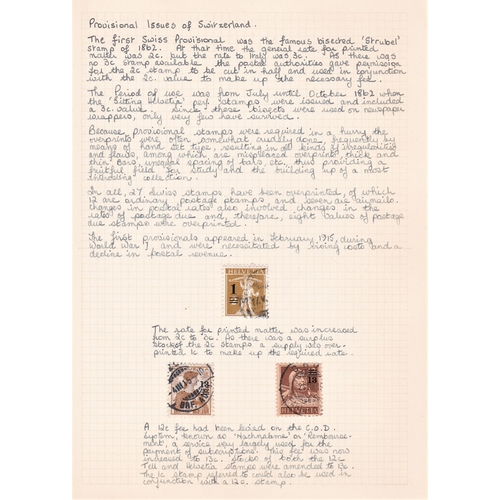 Provisional Issues of Switzerland.
The first Swiss Provisional was the famous bisected 'Strubel'
stamp of 1862. At that time the general rate for printed
matter was 2c. but the rate to Italy was 3c. As there was
no 3c stamp available the postal authorities gave permission
for the 2c stamp to be cut in half and used in conjunction
with the 2c. value to make up the necessary fee.
The Period of use was from July until October 1862 when
the 'Sitting Helvetia' perf stamps were issued and included
a 3c. value. Since these bisects were used on newspaper
wrappers, only very few have survived.
Because provisional stamps were required in a hurry the
overprints were often somewhat crudely done, frequently by
means of hand set type, resulting in all kinds of irregularities
and flaws, among which are misplaced overprints, thick and
thin bars, unequal spacing of bars etc. thus providing a
fruitful field for study and the building up of a most
interesting collection.
In all, 27 Swiss stamps have been overprinted, of which
12 are ordinary postage stamps and seven are airmails.
Changes in postal rates also involved changes in the
rates of postage due and therefore, eight values of postage
due stamps were overprinted.
The first provisionals appeared in February 1915, during
World War 1, and were necessitated by rising costs and a
decline in postal revenue.
1
HELVETIA
The rate for printed matter was increased
from 2c to 3c. As there was a surplus
stock of the 2c stamps a supply was over-
printed 1c to make up the required rate.
13
13
HELVETIA
A 12c fee had been levied on the C.O.D.
System, known as 'Nachnahme' or 'Rembourse-
ment', a service very largely used for the
payment of subscriptions. This fee was now
increased to 13c. Stocks of both the 12c
Tell and Helvetia stamps were amended to 13c.
The 1c stamp referred to could also be used in
conjunction with a 12c. stamp.